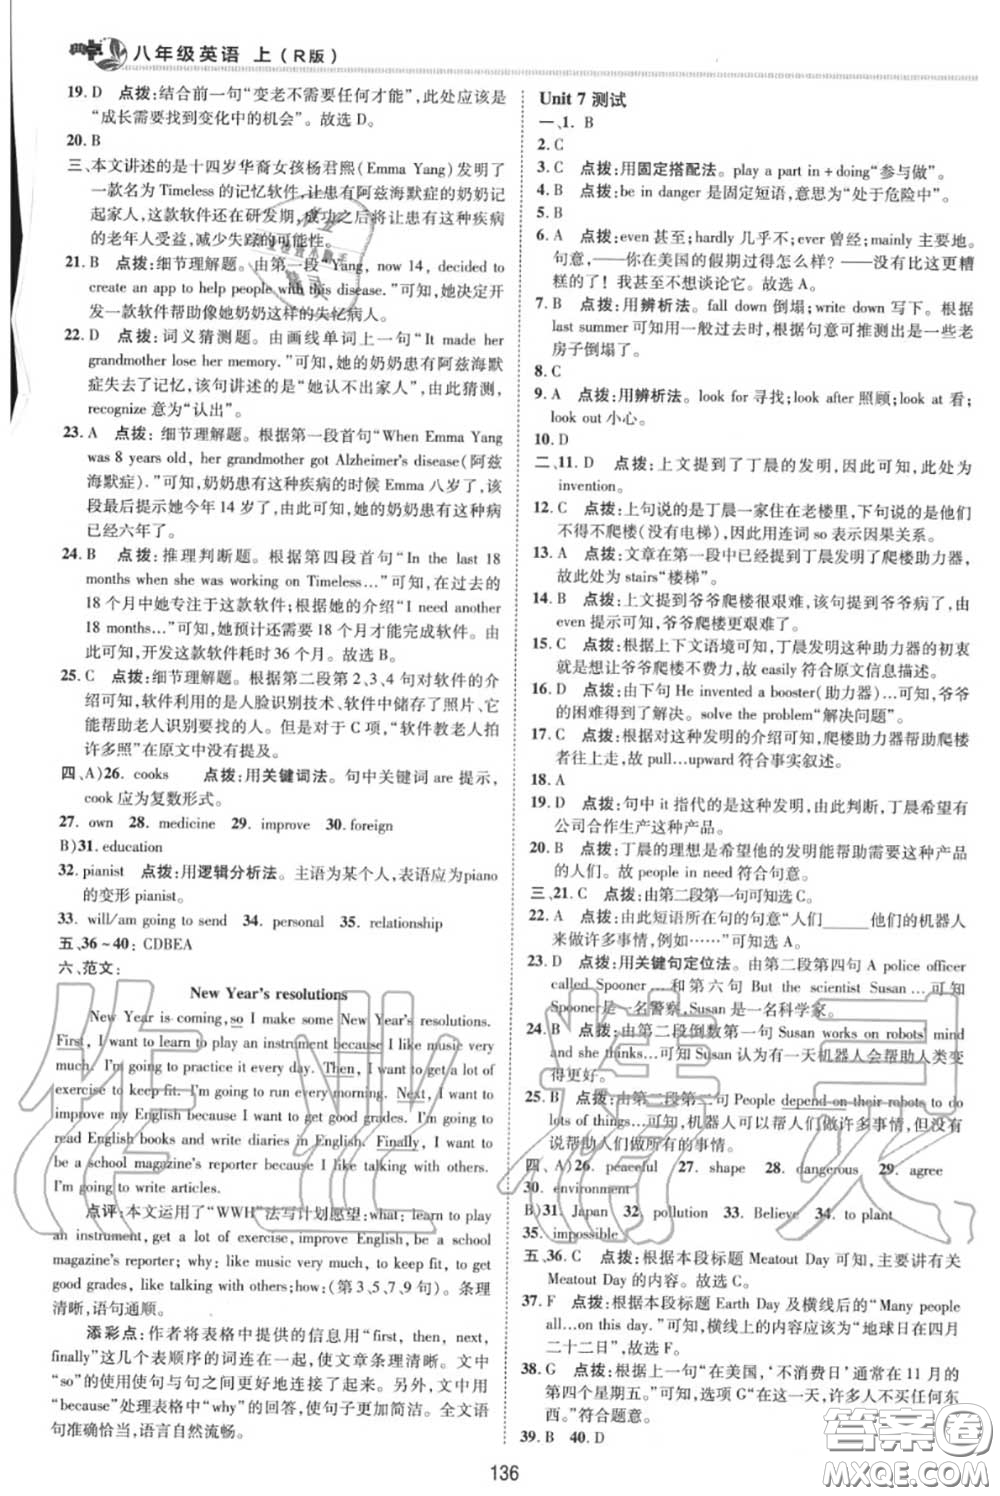 典点 八年级英语 上(R版)
19. D 点拨:结合前一句“变老不需要任何才能”,此处应该是
“成长需要找到变化中的机会”。故选 D。
20. B
三、本文讲述的是十四岁华裔女孩杨君熙(Emma Yang)发明了
一款名为 Timeless 的记忆软件,让患有阿兹海默症的奶奶记
起家人,这款软件还在研发期,成功之后将让患有这种疾病
的老年人受益,减少失踪的可能性。
21. B 点拨:细节理解题。由第一段“Yang, now 14, decided to
create an app to help people with this disease.”可知,她决定开
发一款软件帮助像她奶奶这样的失忆病人。
22. D 点拨:词义猜测题。由画线单词上一句“It made her
grandmother lose her memory.”可知,她的奶奶患有阿兹海默
症失去了记忆,该句讲述的是“她认不出家人”,由此猜测,
recognize 意为“认出”。
23. A 点拨:细节理解题。根据第一段首句“When Emma Yang
was 8 years old, her grandmother got Alzheimer's disease(阿兹
海默症).”可知,奶奶患有这种疾病的时候 Emma 八岁了,该
段最后提示她今年 14 岁了,由此可知,她的奶奶患有这种病
已经六年了。
24. B 点拨:推理判断题。根据第四段首句“In the last 18
months when she was working on Timeless…”可知,在过去的
18 个月中她专注于这款软件;根据她的介绍“I need another
18 months…”可知,她预计还需要 18 个月才能完成软件。由
此可知,开发这款软件耗时 36 个月。故选 B。
25. C 点拨:细节理解题。根据第二段第 2、3、4 句对软件的介
绍可知,软件利用的是人脸识别技术、软件中储存了照片、它
能帮助老人识别要找的人。但是对于 C 项,“软件教老人拍
许多照”在原文中没有提及。
四、A)26. cooks 点拨:用关键词法。句中关键词 are 提示,
cook 应为复数形式。
27. own 28. medicine 29. improve 30. foreign
B)31. education
32. pianist 点拨:用逻辑分析法。主语为某个人,表语应为piano
的变形 pianist。
33. will/am going to send 34. personal 35. relationship
五、36~40: CDBEA
六、范文:
New Year's resolutions
New Year is coming, so I make some New Year's resolutions.
First, I want to learn to play an instrument because I like music very
much. I'm going to practice it every day. Then, I want to get a lot of
exercise to keep fit. I'm going to run every morning. Next, I want to
improve my English because I want to get good grades. I'm going to
read English books and write diaries in English. Finally, I want to
be a school magazine's reporter because I like talking with others.
I'm going to write articles.
点评:本文运用了“WWH”法写计划愿望:what: learn to play
an instrument, get a lot of exercise, improve English, be a school
magazine's reporter; why: like music very much, keep fit, get
good grades, like talking with others;how:(第 3,5,7,9 句)。条理
清晰,语句通顺。
添彩点:作者将表格中提供的信息用“first, then, next,
finally”这几个表顺序的词连在一起,使文章条理清晰。文中
“so”的使用使句与句之间更好地连接了起来。另外,文中用
“because”处理表格中“why”的回答,使句子更加简洁。全文语
句准确恰当,语言自然流畅。
Unit 7 测试
一、1. B
2. C
3. C 点拨:用固定搭配法。play a part in + doing“参与做”。
4. B 点拨:be in danger 是固定短语,意思为“处于危险中”。
5. B
6. A 点拨:even 甚至;hardly 几乎不;ever 曾经;mainly 主要地。
句意,——你在美国的假期过得怎么样? ——没有比这更糟
糕的了! 我甚至不想谈论它。故选 A。
7. B 点拨:用辨析法。fall down 倒塌;write down 写下。根据
last summer 可知用一般过去时,根据句意可推测出是一些老
房子倒塌了。
8. C
9. A 点拨:用辨析法。look for 寻找;look after 照顾;look at 看;
look out 小心。
10. D
二、11. D 点拨:上文提到了丁晨的发明,因此可知,此处是
invention。
12. C 点拨:上句说的是丁晨一家住在老楼里,下句说的是他
们不得不爬楼(没有电梯),因此用连词 so 表示因果关系。
13. A 点拨:文章在第一段中已经提到丁晨发明了爬楼助力器,
故此处为 stairs“楼梯”。
14. B 点拨:上文提到了爷爷爬楼很艰难,该句提到爷爷病了,由
even 提示可知,爷爷爬楼更艰难了。
15. C 点拨:根据上下文语境可知,丁晨发明这种助力器的初衷
就是想让爷爷爬楼不费力,故 easily 符合原文信息描述。
16. D 点拨:由下句 He invented a booster(助力器)…可知,爷爷
的困难得到了解决。solve the problem“解决问题”。
17. C 点拨:根据对这种发明的介绍可知,爬楼助力器帮助爬楼
者往上走,故 pull…upward 符合事实叙述。
18. A
19. D 点拨:句中 it 指代的是这种发明,由此判断,丁晨希望有
公司合作生产这种产品。
20. B 点拨:丁晨的理想是希望他的发明能帮助需要这种产品
的人们。故 people in need 符合句意。
三、21. C 点拨:由第二段第一句可知选 C。
22. A 点拨:由此短语所在句的句意“人们____他们的机器人
来做许多事情,例如……”可知选 A。
23. D 点拨:用关键句定位法。由第二段第四句 A police officer
called Spooner…和第六句 But the scientist Susan…可知
Spooner是一名警察,Susan 是一名科学家。
24. B 点拨:由第二段倒数第一句 Susan works on robots' mind
and she thinks…可知 Susan 认为有一天机器人会帮助人类变
得更好。
25. C 点拨:由第二段第二句 People depend on their robots to do
lots of things…可知,机器人可以帮人们做许多事情,但没有
说帮助人们做所有的事情。
四、A)26. peaceful 27. shape 28. dangerous 29. agree
30. environment
B)31. Japan 32. pollution 33. Believe 34. to plant
35. impossible
五、36. C 点拨:根据本段标题 Meatout Day 可知,主要讲有关
Meatout Day 的内容。故选 C。
37. F 点拨:根据本段标题 Earth Day 及横线后的“Many people
all…on this day.”可知,横线上的内容为“地球日在四月
二十二日”,故选 F。
38. G 点拨:根据上一句“在美国,‘不消费日’通常在 11 月的
第四个星期五。”可知,选项 G“在这一天,许多人不买任何东
西。”符合题意。
39. B 40. D
136
作业精灵
答案圈
MXQE.COM